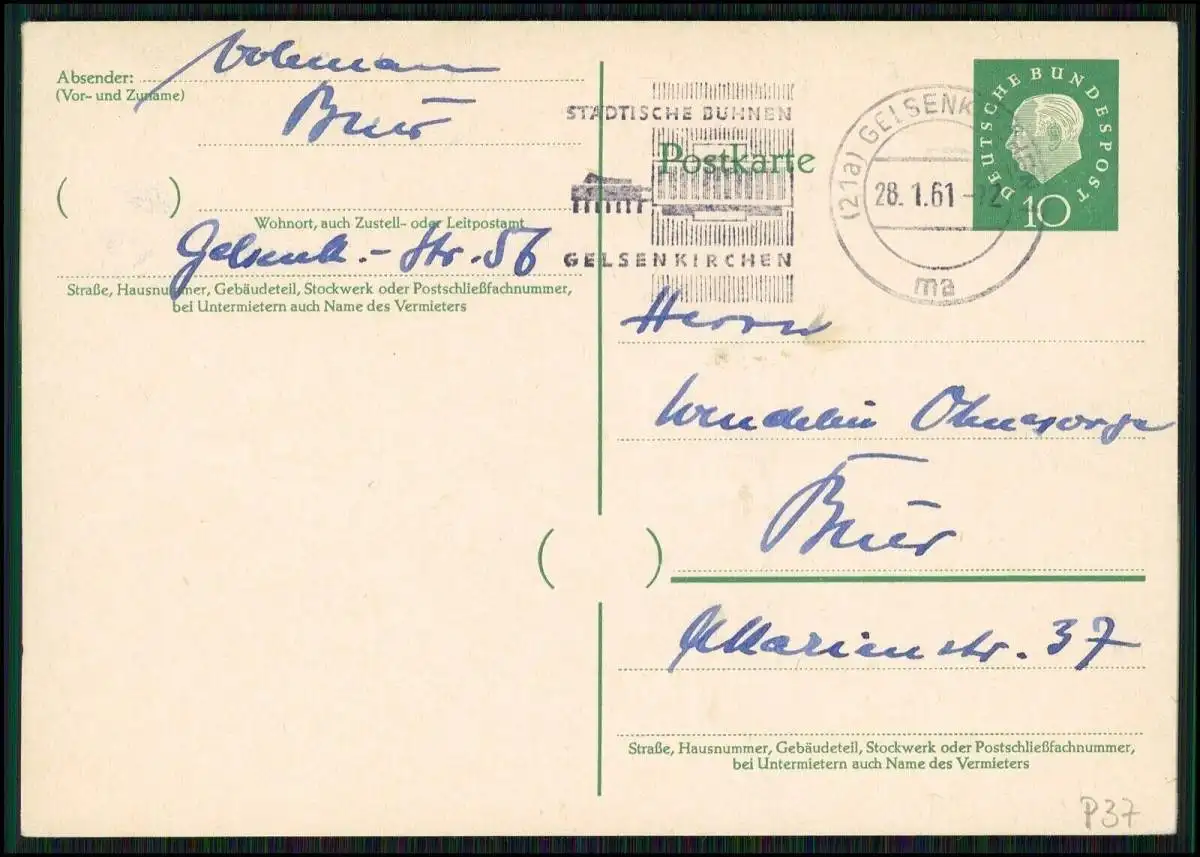 Absender:
(Vor- und Zuname)
Buer
( )
Wohnort, auch Zustell- oder Leitpostamt
Gelsenk.-Str. 56
Straße, Hausnummer, Gebäudeteil, Stockwerk oder Postschließfachnummer,
bei Untermietern auch Name des Vermieters
STÄDTISCHE BÜHNEN
GELSENKIRCHEN
Postkarte
(21a) GELSENK
28.1.61
ma
DEUTSCHE BUNDESPOST
10
Herrn
Wendelin Ohnesorge
Buer
( )
Marienstr. 37
Straße, Hausnummer, Gebäudeteil, Stockwerk oder Postschließfachnummer,
bei Untermietern auch Name des Vermieters
P37